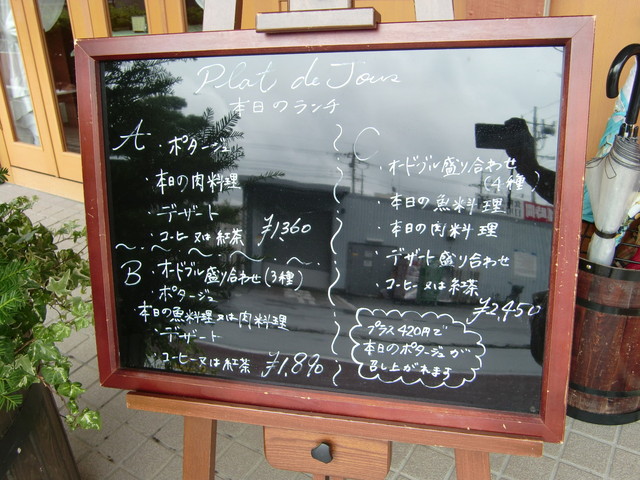 Plat de Jous
本日のランチ
A ・ポタージュ
・本日の肉料理
・デザート
・コーヒー又は紅茶 ¥1,360
B ・オードブル盛り合わせ(3種)
・ポタージュ
本日の魚料理又は肉料理
・デザート
コーヒー又は紅茶 ¥1,890
C
・オードブル盛り合わせ
(4種)
・本日の魚料理
・本日の肉料理
・デザート盛り合わせ
・コーヒー又は紅茶
¥2,450
プラス420円で
本日のポタージュが
召し上がれます